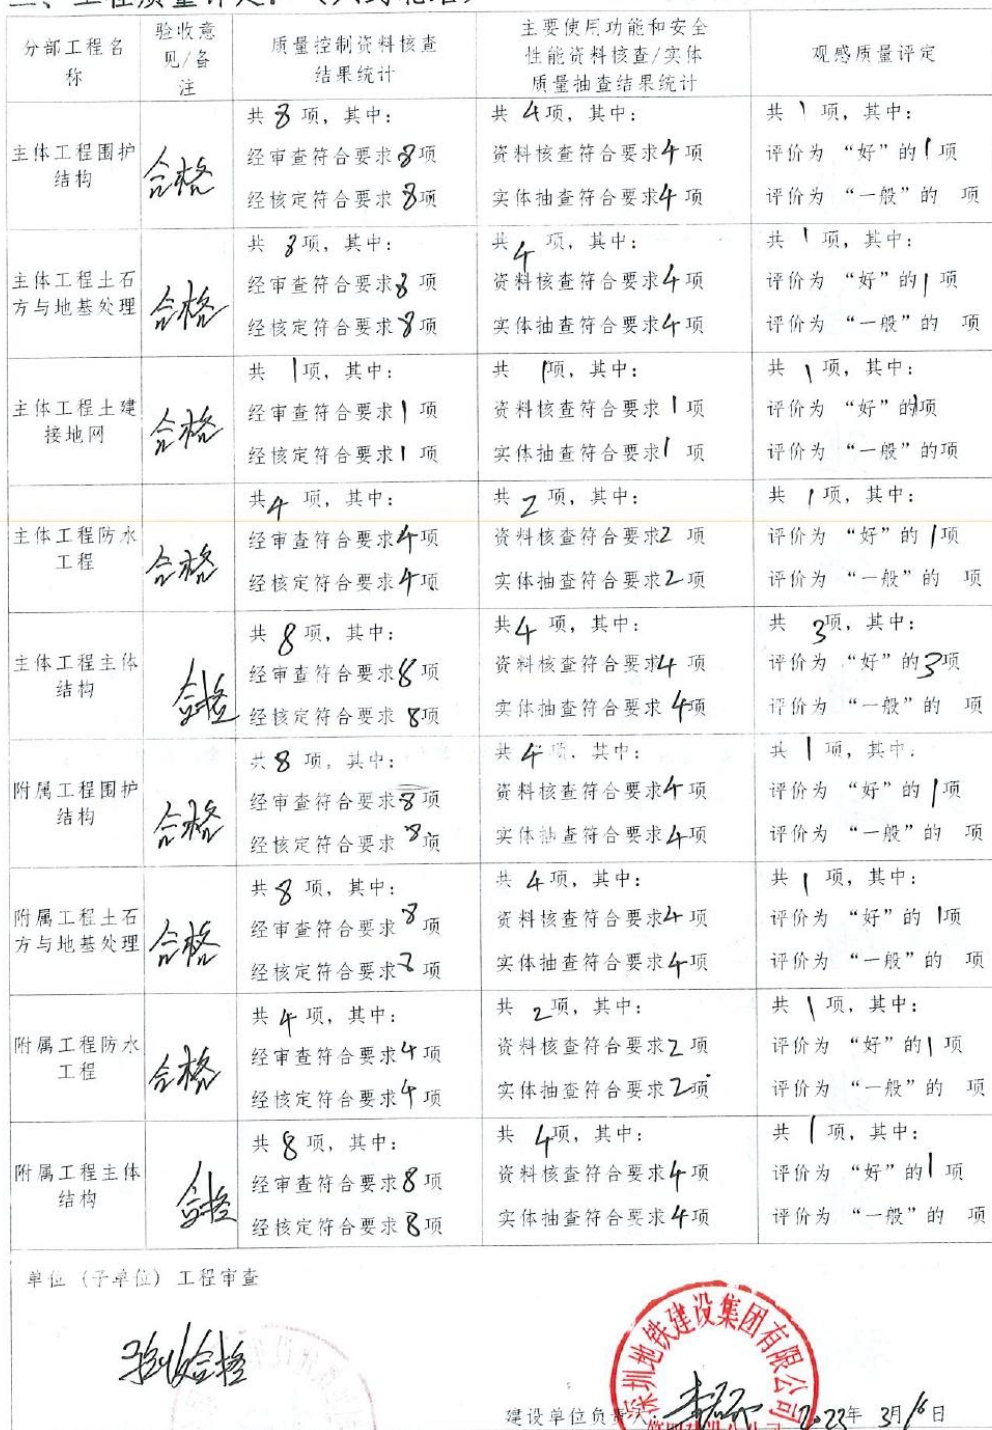 分部工程名称
验收意见/备注
质量控制资料核查结果统计
主要使用功能和安全性能资料核查/实体质量抽查结果统计
观感质量评定
主体工程围护结构
合格
共 8 项，其中：
经审查符合要求 8 项
经核定符合要求 8 项
共 4 项，其中：
资料核查符合要求 4 项
实体抽查符合要求 4 项
共 1 项，其中：
评价为 “好”的 1 项
评价为 “一般”的 项
主体工程土石方与地基处理
合格
共 8 项，其中：
经审查符合要求 8 项
经核定符合要求 8 项
共 4 项，其中：
资料核查符合要求 4 项
实体抽查符合要求 4 项
共 1 项，其中：
评价为 “好”的 1 项
评价为 “一般”的 项
主体工程土建接地网
合格
共 1 项，其中：
经审查符合要求 1 项
经核定符合要求 1 项
共 1 项，其中：
资料核查符合要求 1 项
实体抽查符合要求 1 项
共 1 项，其中：
评价为 “好”的 1 项
评价为 “一般”的项
主体工程防水工程
合格
共 4 项，其中：
经审查符合要求 4 项
经核定符合要求 4 项
共 2 项，其中：
资料核查符合要求 2 项
实体抽查符合要求 2 项
共 1 项，其中：
评价为 “好”的 1 项
评价为 “一般”的 项
主体工程主体结构
合格
共 8 项，其中：
经审查符合要求 8 项
经核定符合要求 8 项
共 4 项，其中：
资料核查符合要求 4 项
实体抽查符合要求 4 项
共 3 项，其中：
评价为 “好”的 3 项
评价为 “一般”的 项
附属工程围护结构
合格
共 8 项，其中：
经审查符合要求 8 项
经核定符合要求 8 项
共 4 项，其中：
资料核查符合要求 4 项
实体抽查符合要求 4 项
共 1 项，其中：
评价为 “好”的 1 项
评价为 “一般”的 项
附属工程土石方与地基处理
合格
共 8 项，其中：
经审查符合要求 8 项
经核定符合要求 8 项
共 4 项，其中：
资料核查符合要求 4 项
实体抽查符合要求 4 项
共 1 项，其中：
评价为 “好”的 1 项
评价为 “一般”的 项
附属工程防水工程
合格
共 4 项，其中：
经审查符合要求 4 项
经核定符合要求 4 项
共 2 项，其中：
资料核查符合要求 2 项
实体抽查符合要求 2 项
共 1 项，其中：
评价为 “好”的 1 项
评价为 “一般”的 项
附属工程主体结构
合格
共 8 项，其中：
经审查符合要求 8 项
经核定符合要求 8 项
共 4 项，其中：
资料核查符合要求 4 项
实体抽查符合要求 4 项
共 1 项，其中：
评价为 “好”的 1 项
评价为 “一般”的 项
单位（子单位）工程审查
验收合格
深圳地铁建设集团有限公司
建设单位负责人：
2023年 3月16日